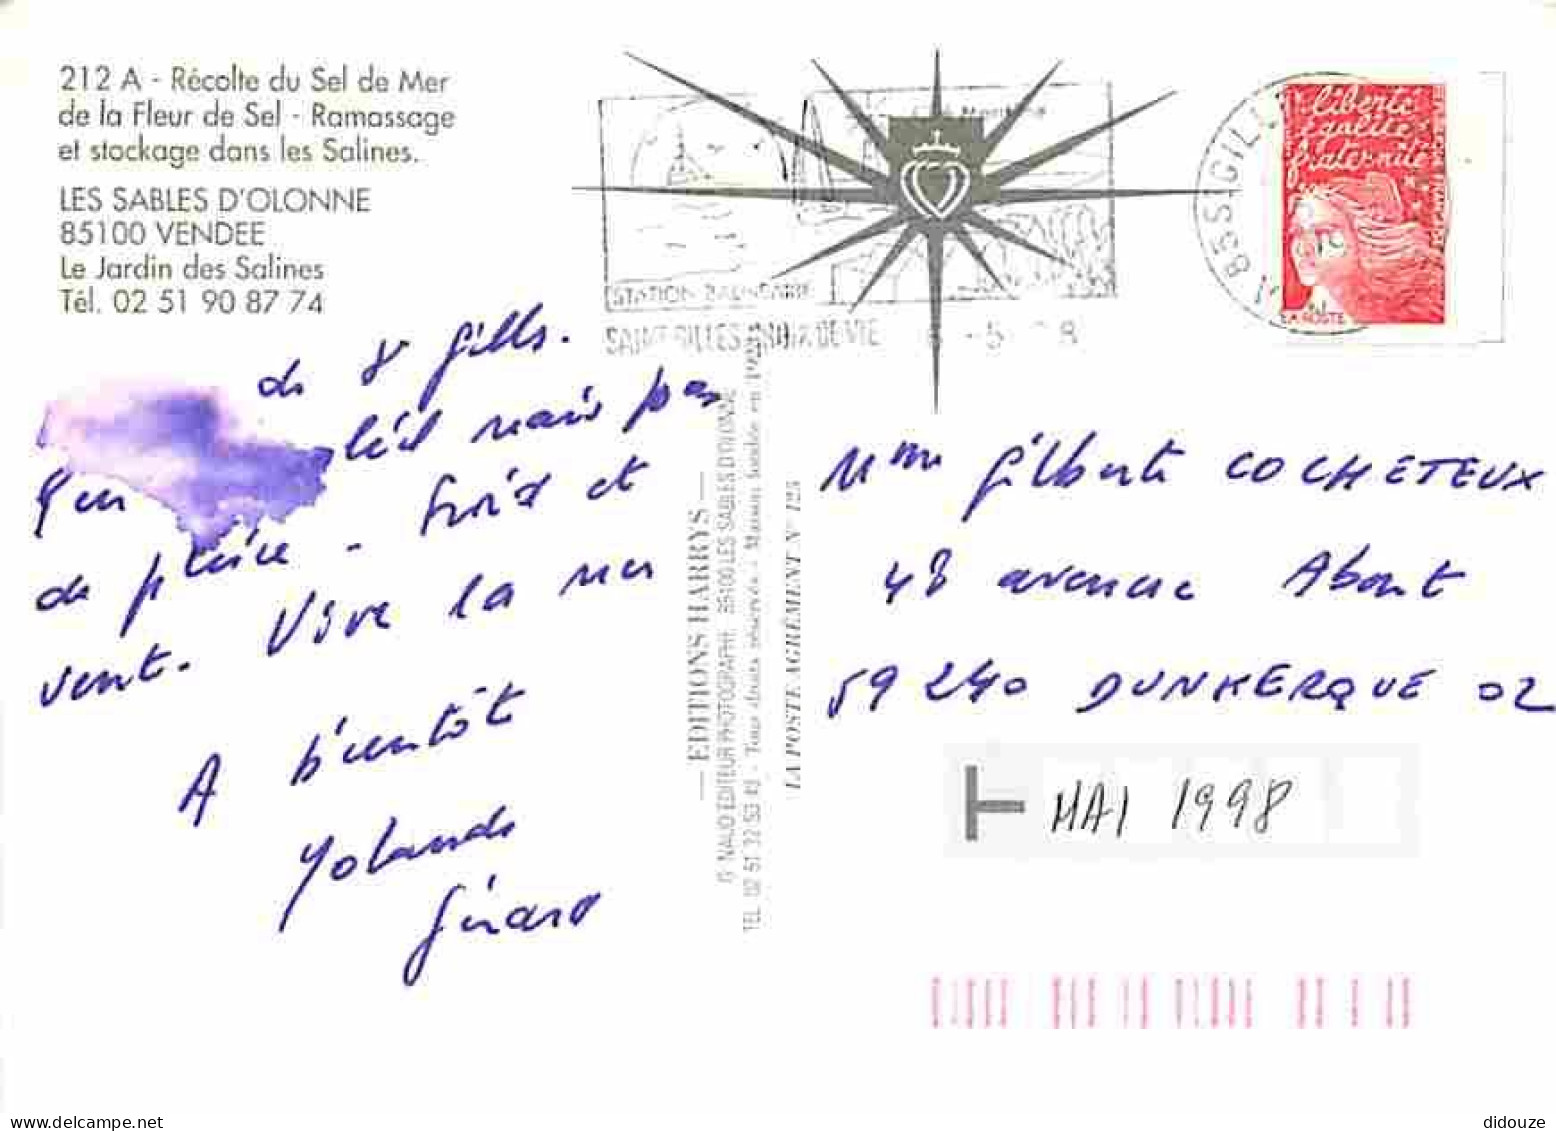 212 A - Récolte du Sel de Mer
de la Fleur de Sel - Ramassage
et stockage dans les Salines.
LES SABLES D'OLONNE
85100 VENDEE
Le Jardin des Salines
Tél. 02 51 90 87 74
STATION BALNEAIRE
SAINT GILLES CROIX DE VIE
liberté
égalité
fraternité
LA POSTE
de St Gills.
mais pas
de pluie - froid et
vent. Vive la mer
A bientôt
Yolande
Gérard
— EDITIONS HARRYS —
NAUD EDITEUR PHOTOGRAPHE 85100 LES SABLES D'OLONNE
TEL 02 51 32 53 43 - Tous droits réservés - Maison fondée en
LA POSTE AGRÉMENT N° 125
Mme Gilberte COCHETEUX
48 avenue About
59240 DUNKERQUE 02
MAI 1998
didouze